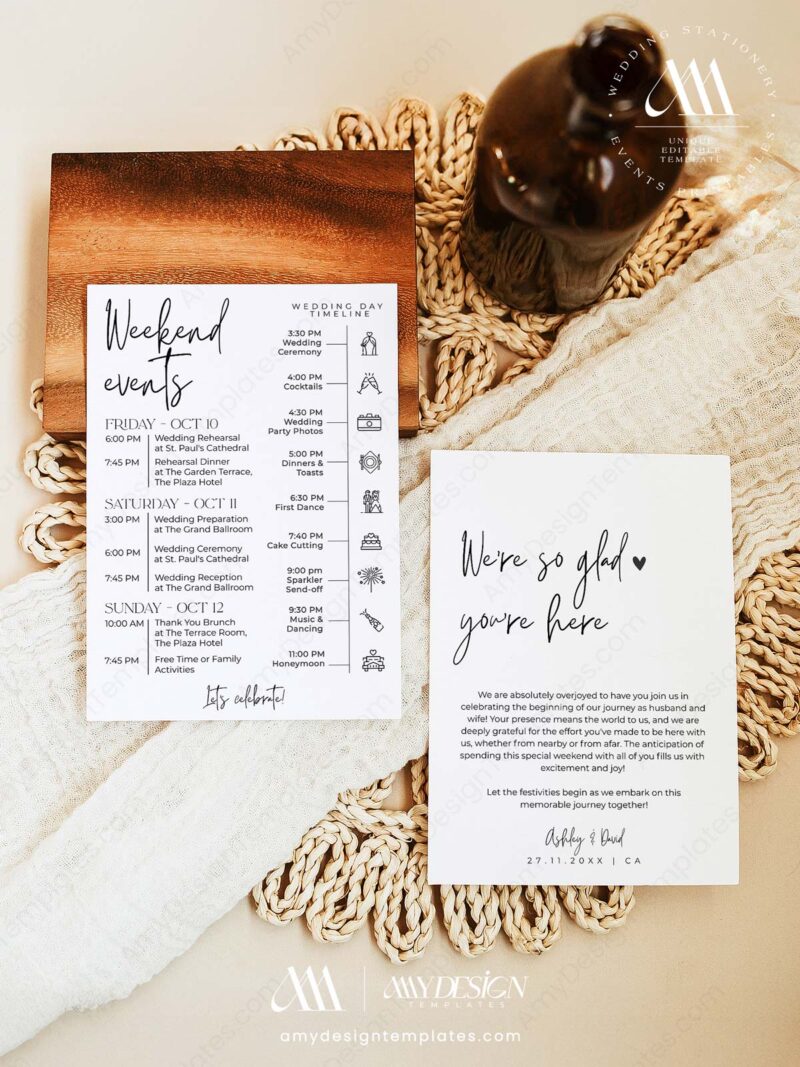 WEDDING STATIONERY
EVENTS PRINTABLES
UNIQUE
EDITABLE
TEMPLATE
Weekend
events
FRIDAY - OCT 10
6:00 PM Wedding Rehearsal
at St. Paul's Cathedral
7:45 PM Rehearsal Dinner
at The Garden Terrace,
The Plaza Hotel
SATURDAY - OCT 11
3:00 PM Wedding Preparation
at The Grand Ballroom
6:00 PM Wedding Ceremony
at St. Paul's Cathedral
7:45 PM Wedding Reception
at The Grand Ballroom
SUNDAY - OCT 12
10:00 AM Thank You Brunch
at The Terrace Room,
The Plaza Hotel
7:45 PM Free Time or Family
Activities
WEDDING DAY
TIMELINE
3:30 PM
Wedding
Ceremony
4:00 PM
Cocktails
4:30 PM
Wedding
Party Photos
5:00 PM
Dinners &
Toasts
6:30 PM
First Dance
7:40 PM
Cake Cutting
9:00 pm
Sparkler
Send-off
9:30 PM
Music &
Dancing
11:00 PM
Honeymoon
Let's celebrate!
We're so glad
you're here
We are absolutely overjoyed to have you join us in
celebrating the beginning of our journey as husband and
wife! Your presence means the world to us, and we are
deeply grateful for the effort you've made to be here with
us, whether from nearby or from afar. The anticipation of
spending this special weekend with all of you fills us with
excitement and joy!
Let the festivities begin as we embark on this
memorable journey together!
Ashley & David
27.11.20XX | CA
AMYDESIGN
TEMPLATES
amydesigntemplates.com